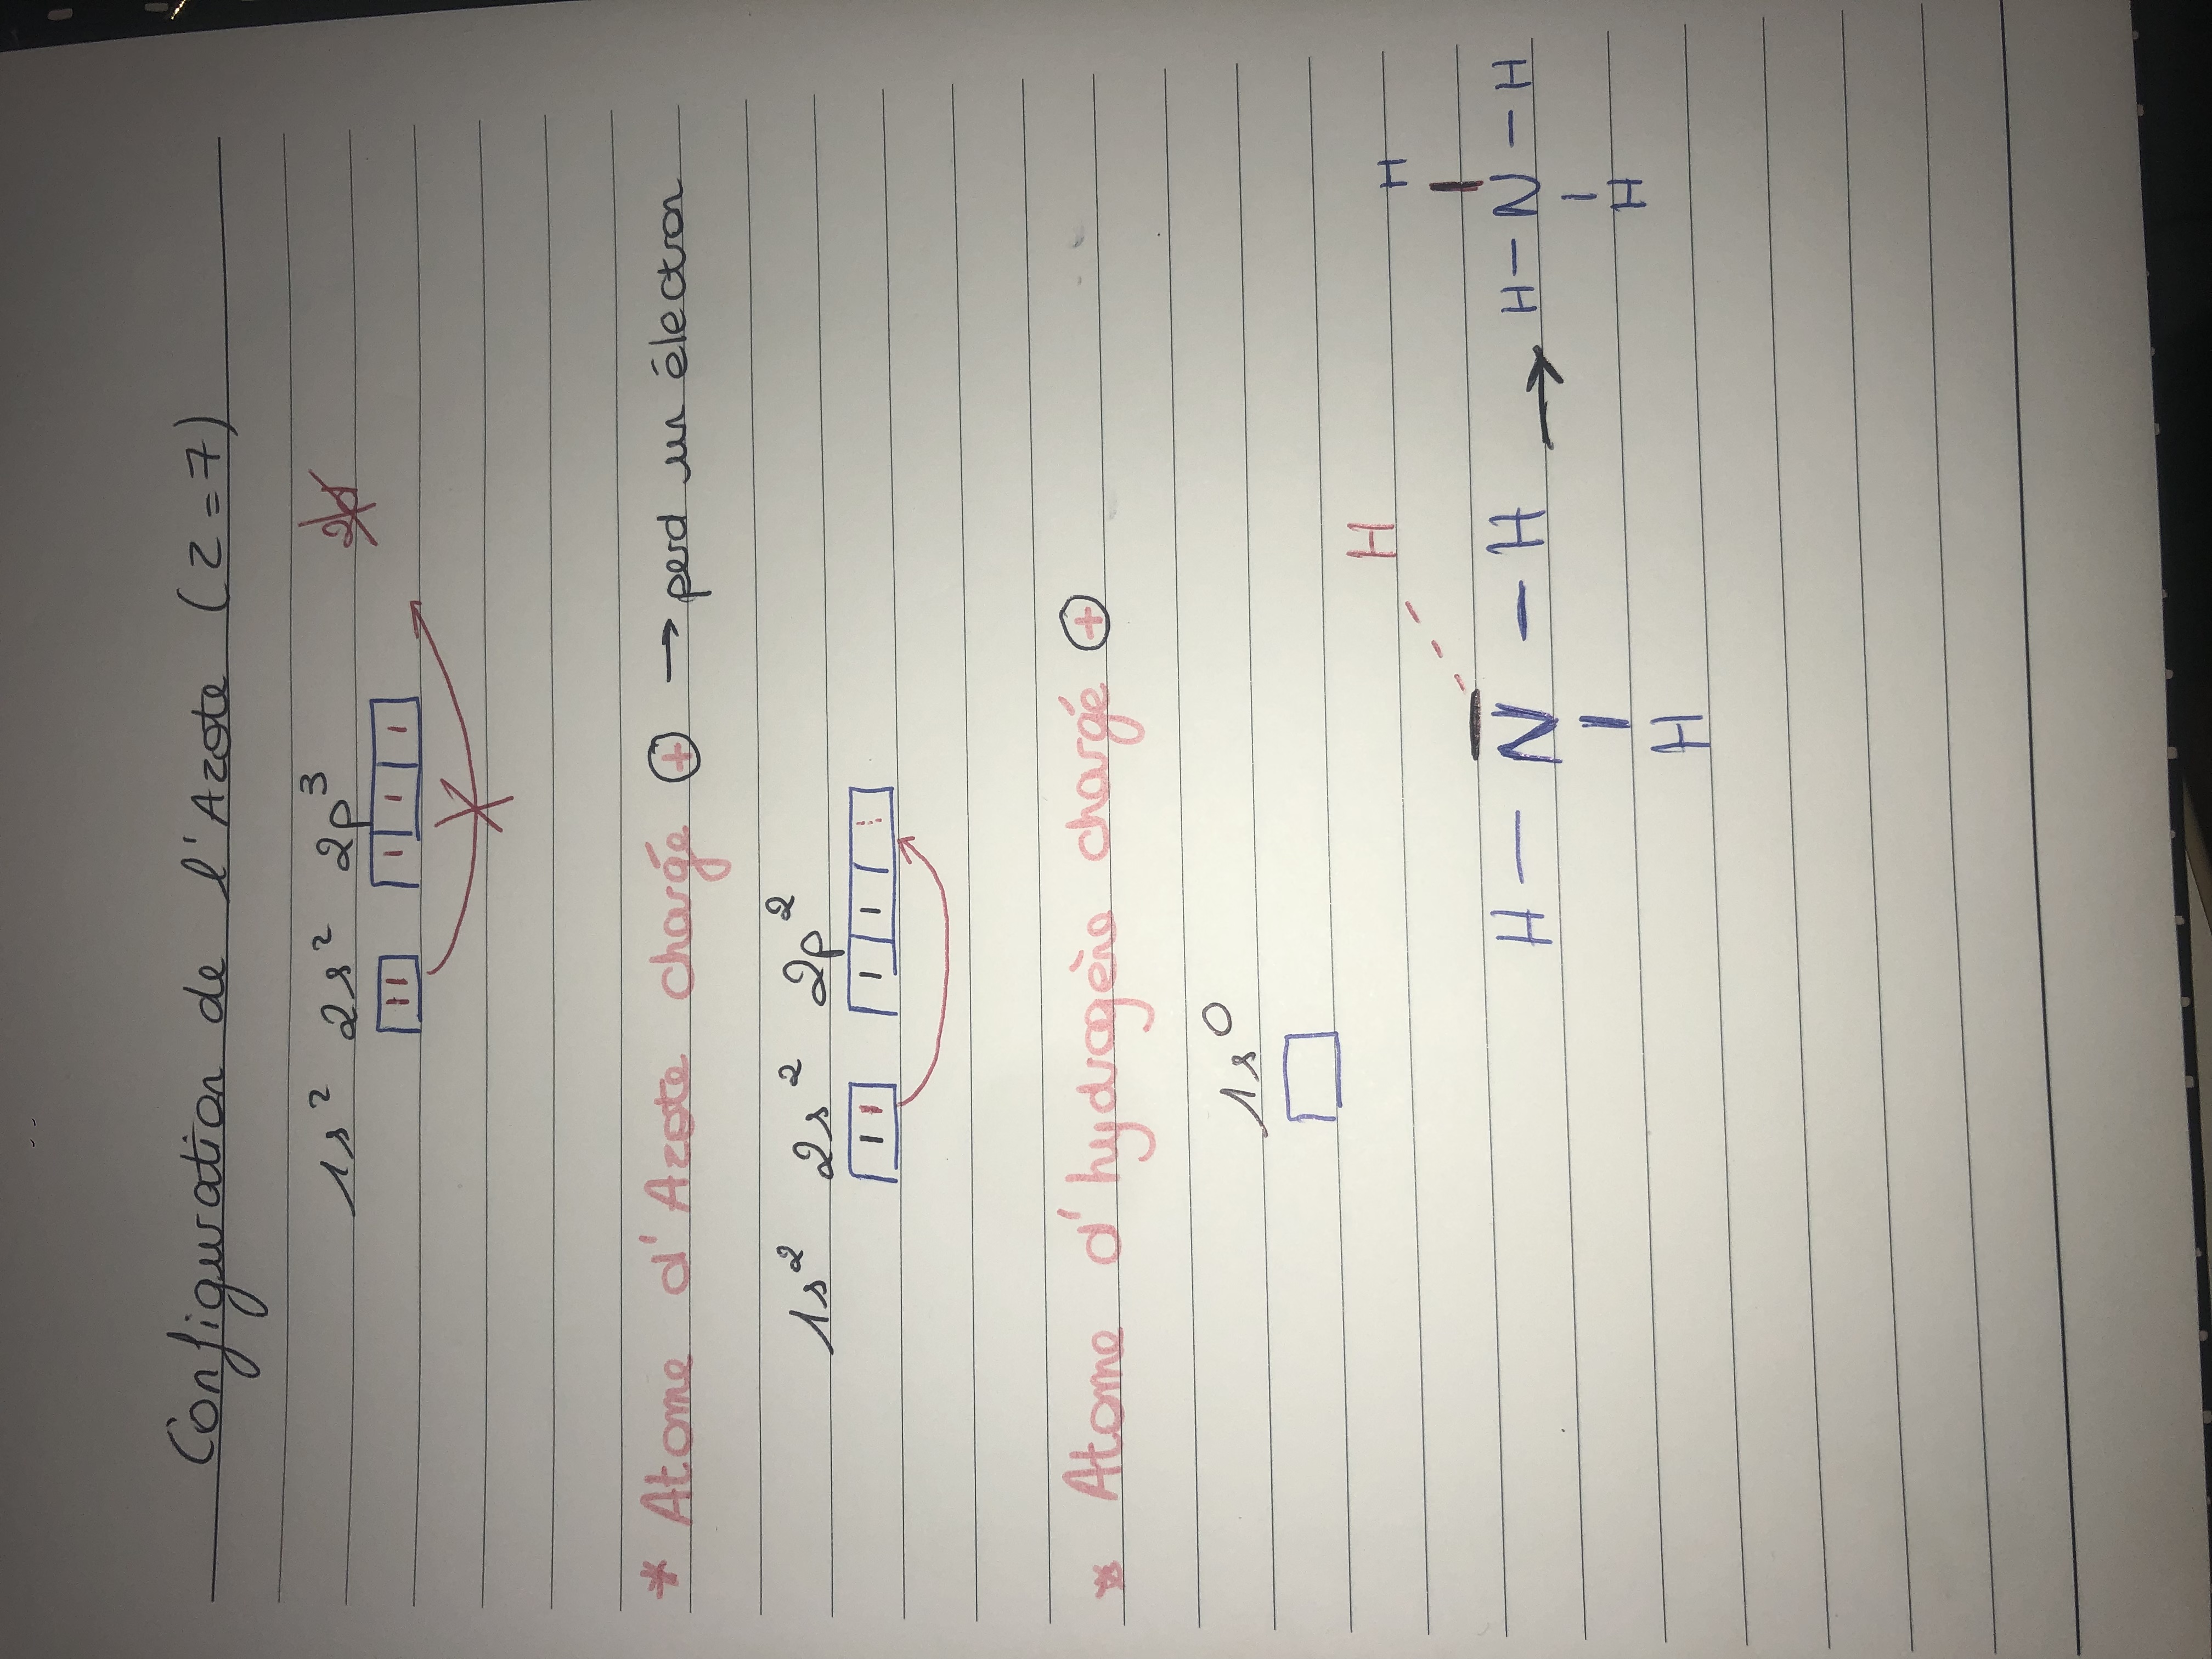 Configuration de l'Azote (Z=7)
1s² 2s² 2p³
* Atome d'Azote chargé + → perd un électron
1s² 2s² 2p²
* Atome d'hydrogène chargé +
1s⁰
H H
H – N – H → H – N – H
H H